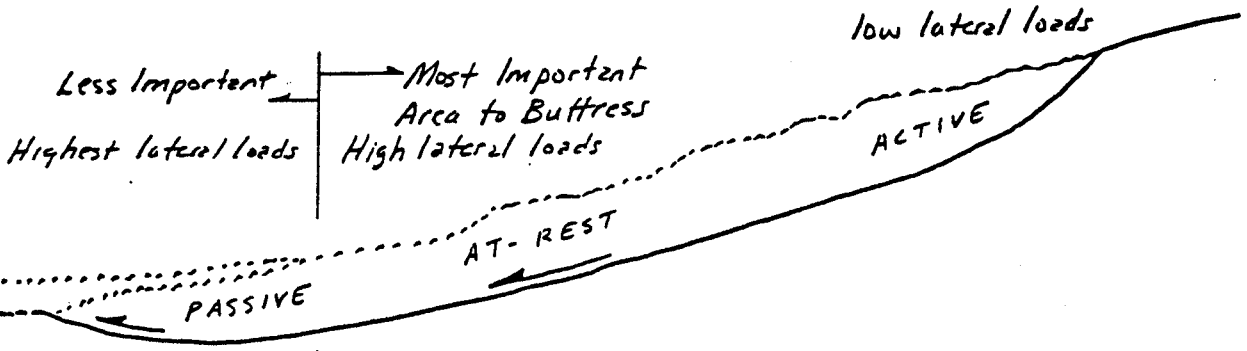 low lateral loads
Less Important
Most Important
Area to Buttress
Highest lateral loads
High lateral loads
ACTIVE
AT-REST
PASSIVE